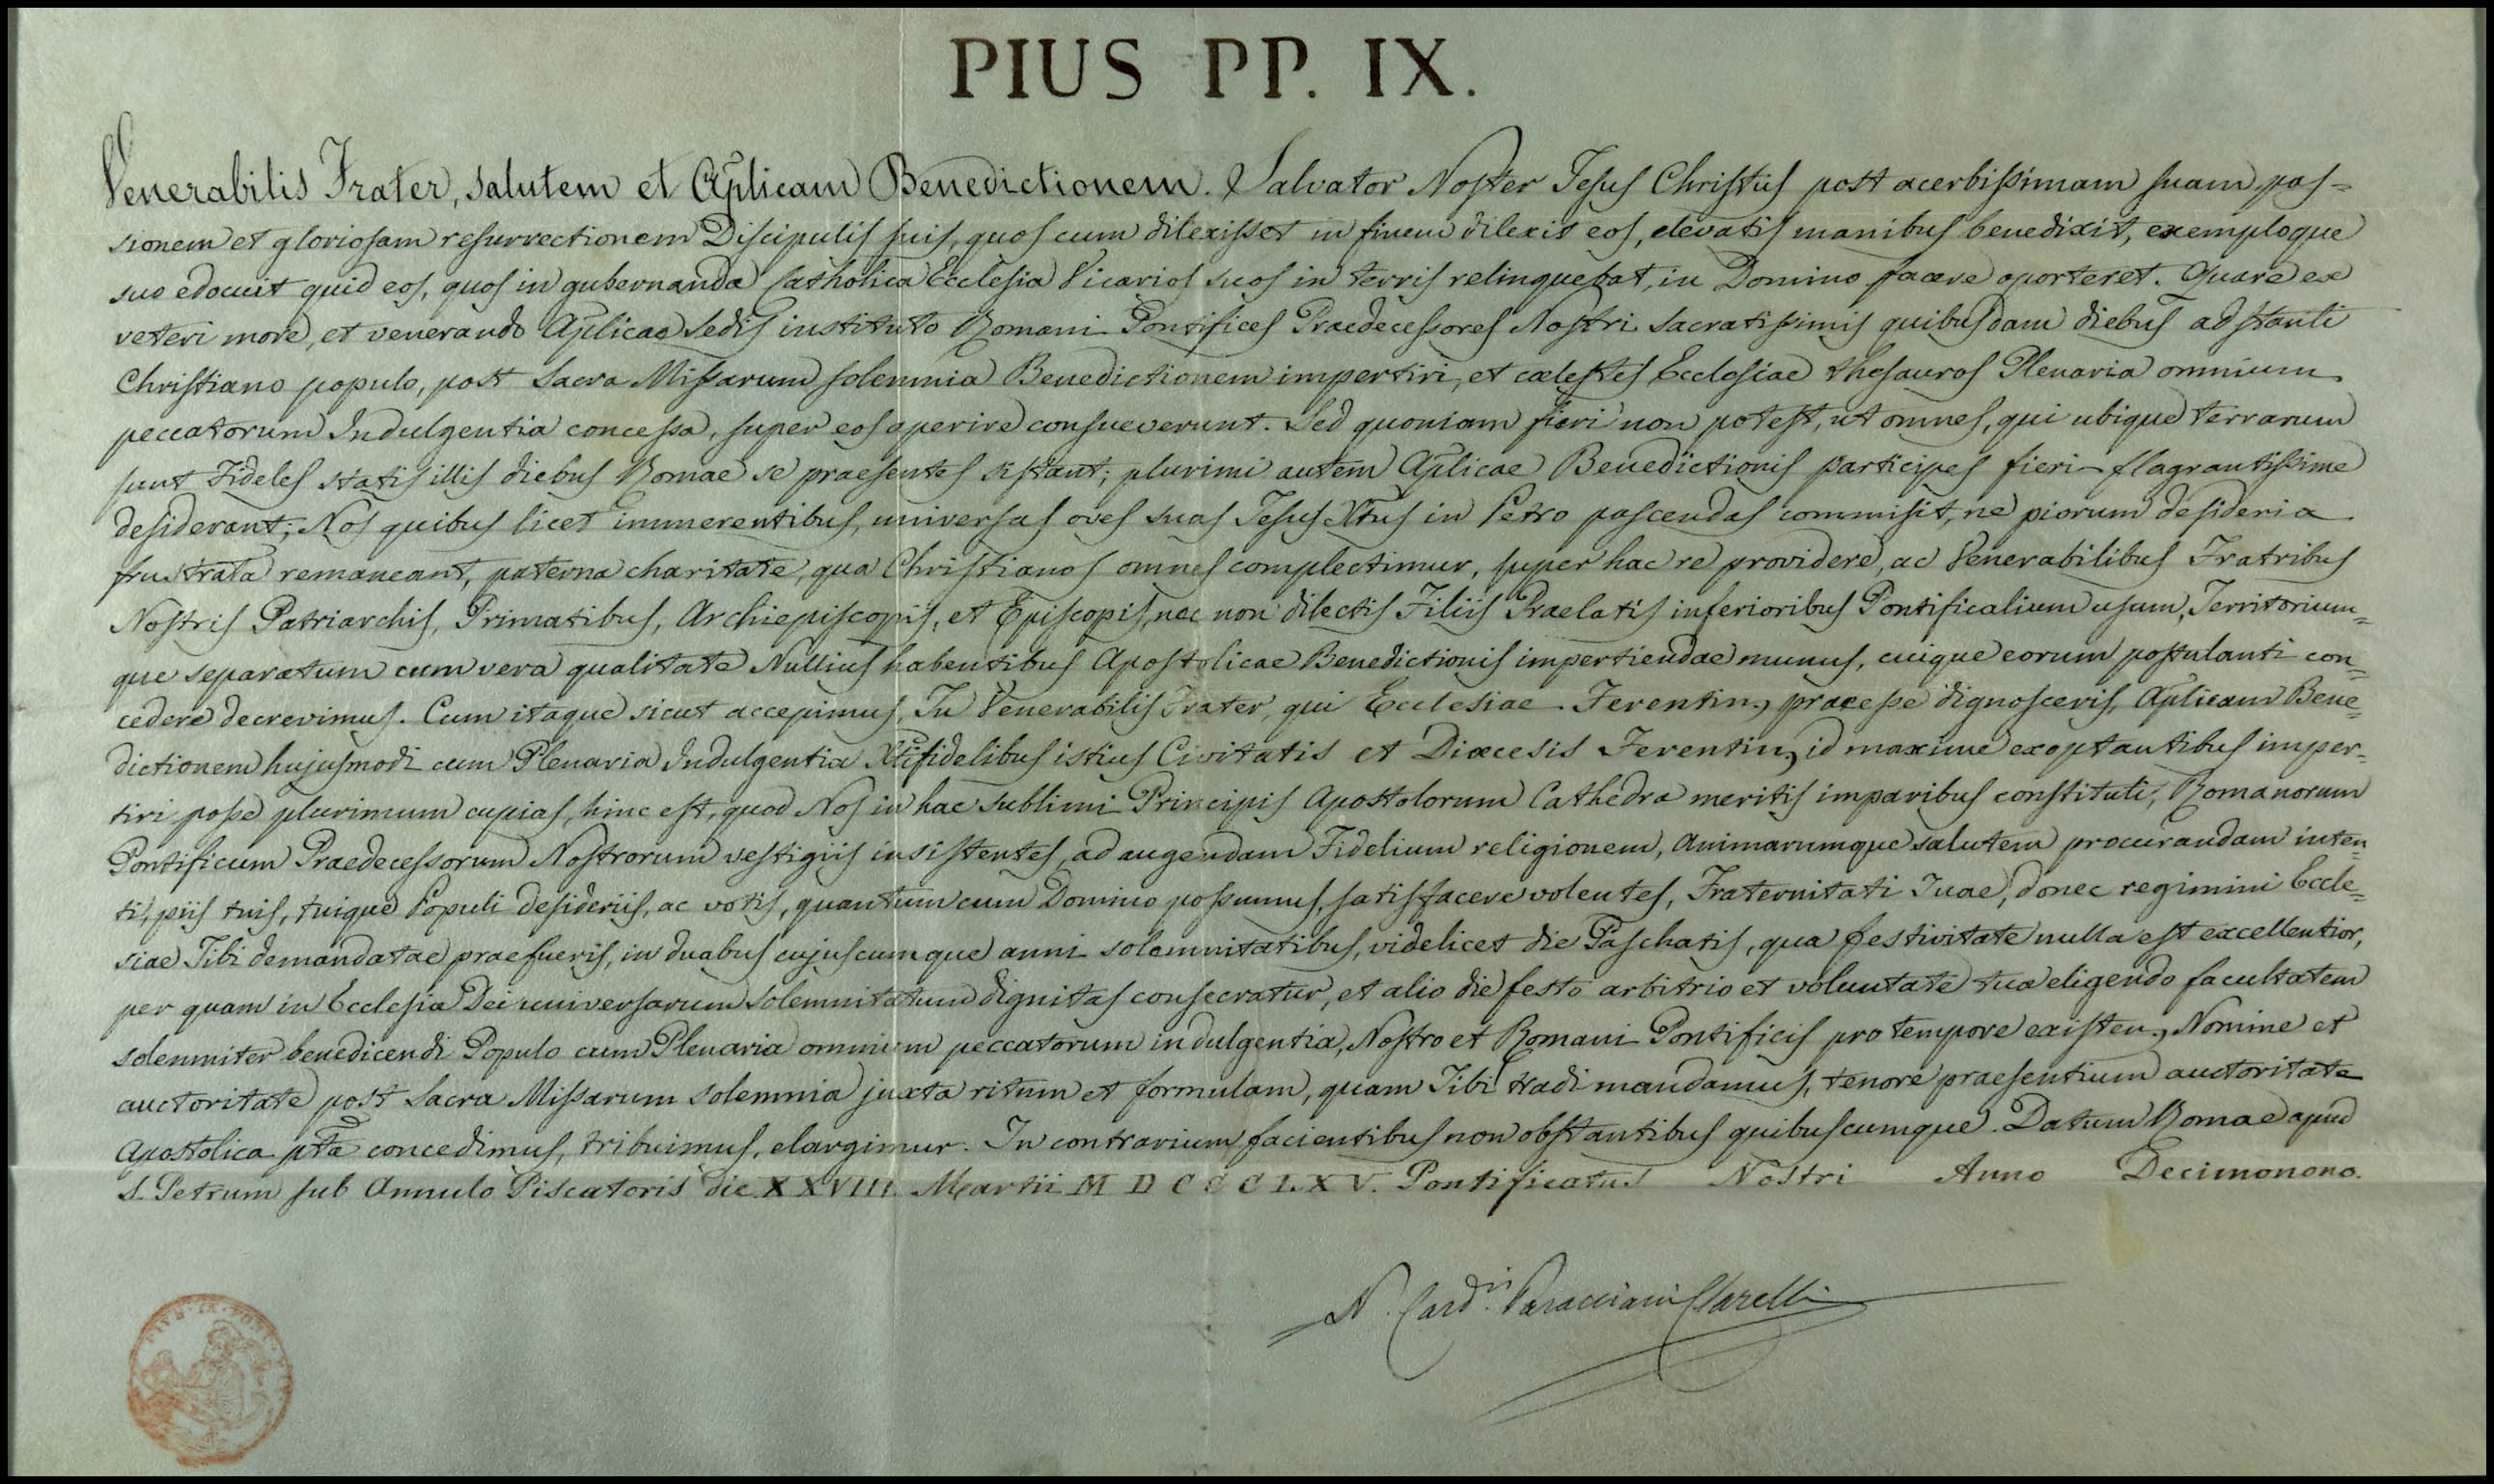 PIUS PP. IX.
Venerabilis Frater, salutem et Aplicam Benedictionem. Salvator Noster Jesus Christus post acerbissimam suam pas=
sionem et gloriosam resurrectionem Discipulis suis, quos cum dilexisset in finem dilexit eos, elevatis manibus benedixit, exemploque
suo edocuit quid eos, quos in gubernanda Catholica Ecclesia Vicarios suos in terris relinquebat, in Domino facere oporteret. Quare ex
veteri more, et venerando Aplicae Sedis instituto Romani Pontifices Praedecessores Nostri sacratissimis quibusdam diebus adstanti
Christiano populo, post Sacra Missarum solemnia Benedictionem impertiri, et caelestes Ecclesiae thesauros Plenaria omnium
peccatorum Indulgentia concessa, super eos aperire consueverunt. Sed quoniam fieri non potest, ut omnes, qui ubique terrarum
sunt Fideles statis illis diebus Romae se praesentes sistant; plurimi autem Aplicae Benedictionis participes fieri flagrantissime
desiderant; Nos quibus licet immerentibus, universas oves suas Jesus Xtus in Petro pascendas commisit, ne piorum desideria
frustrata remaneant, paterna charitate, qua Christianos omnes complectimur, super hac re providere, ac Venerabilibus Fratribus
Nostris Patriarchis, Primatibus, Archiepiscopis, et Episcopis, nec non dilectis Filiis Praelatis inferioribus Pontificalium usum, Territorium=
que separatum cum vera qualitate Nullius habentibus Apostolicae Benedictionis impertiendae munus, cuique eorum postulanti con=
cedere decrevimus. Cum itaque sicut accepimus, Tu Venerabilis Frater, qui Ecclesiae Ferentin, praeesse dignosceris, Aplicam Bene=
dictionem hujusmodi cum Plenaria Indulgentia Xtifidelibus istius Civitatis et Dioecesis Ferentin, id maxime exoptantibus imper=
tiri posse plurimum cupias, hinc est, quod Nos in hac sublimi Principis Apostolorum Cathedra meritis imparibus constituti, Romanorum
Pontificum Praedecessorum Nostrorum vestigiis insistentes, ad augendam Fidelium religionem, Animarumque salutem procurandam inten=
ti, piis tuis, tuique Populi desideriis, ac votis, quantum cum Domino possumus, satisfacere volentes, Fraternitati Tuae, donec regimini Eccle=
siae Tibi demandatae praefueris, in duabus cujuscumque anni solemnitatibus, videlicet die Paschatis, qua festivitate nulla est excellentior,
per quam in Ecclesia Dei universarum solemnitatum dignitas consecratur, et alio die festo arbitrio et voluntate tua eligendo facultatem
solemniter benedicendi Populo cum Plenaria omnium peccatorum indulgentia, Nostro et Romani Pontificis pro tempore existen, Nomine et
auctoritate post Sacra Missarum solemnia juxta ritum et formulam, quam Tibi tradi mandamus, tenore praesentium auctoritate
Apostolica pta concedimus, tribuimus, elargimur. In contrarium facientibus non obstantibus quibuscumque. Datum Romae apud
S. Petrum sub Annulo Piscatoris die XXVIII. Martii MDCCCLXV. Pontificatus Nostri Anno Decimonono.
N. Card. Paracciani Clarelli
PIUS IX PONT